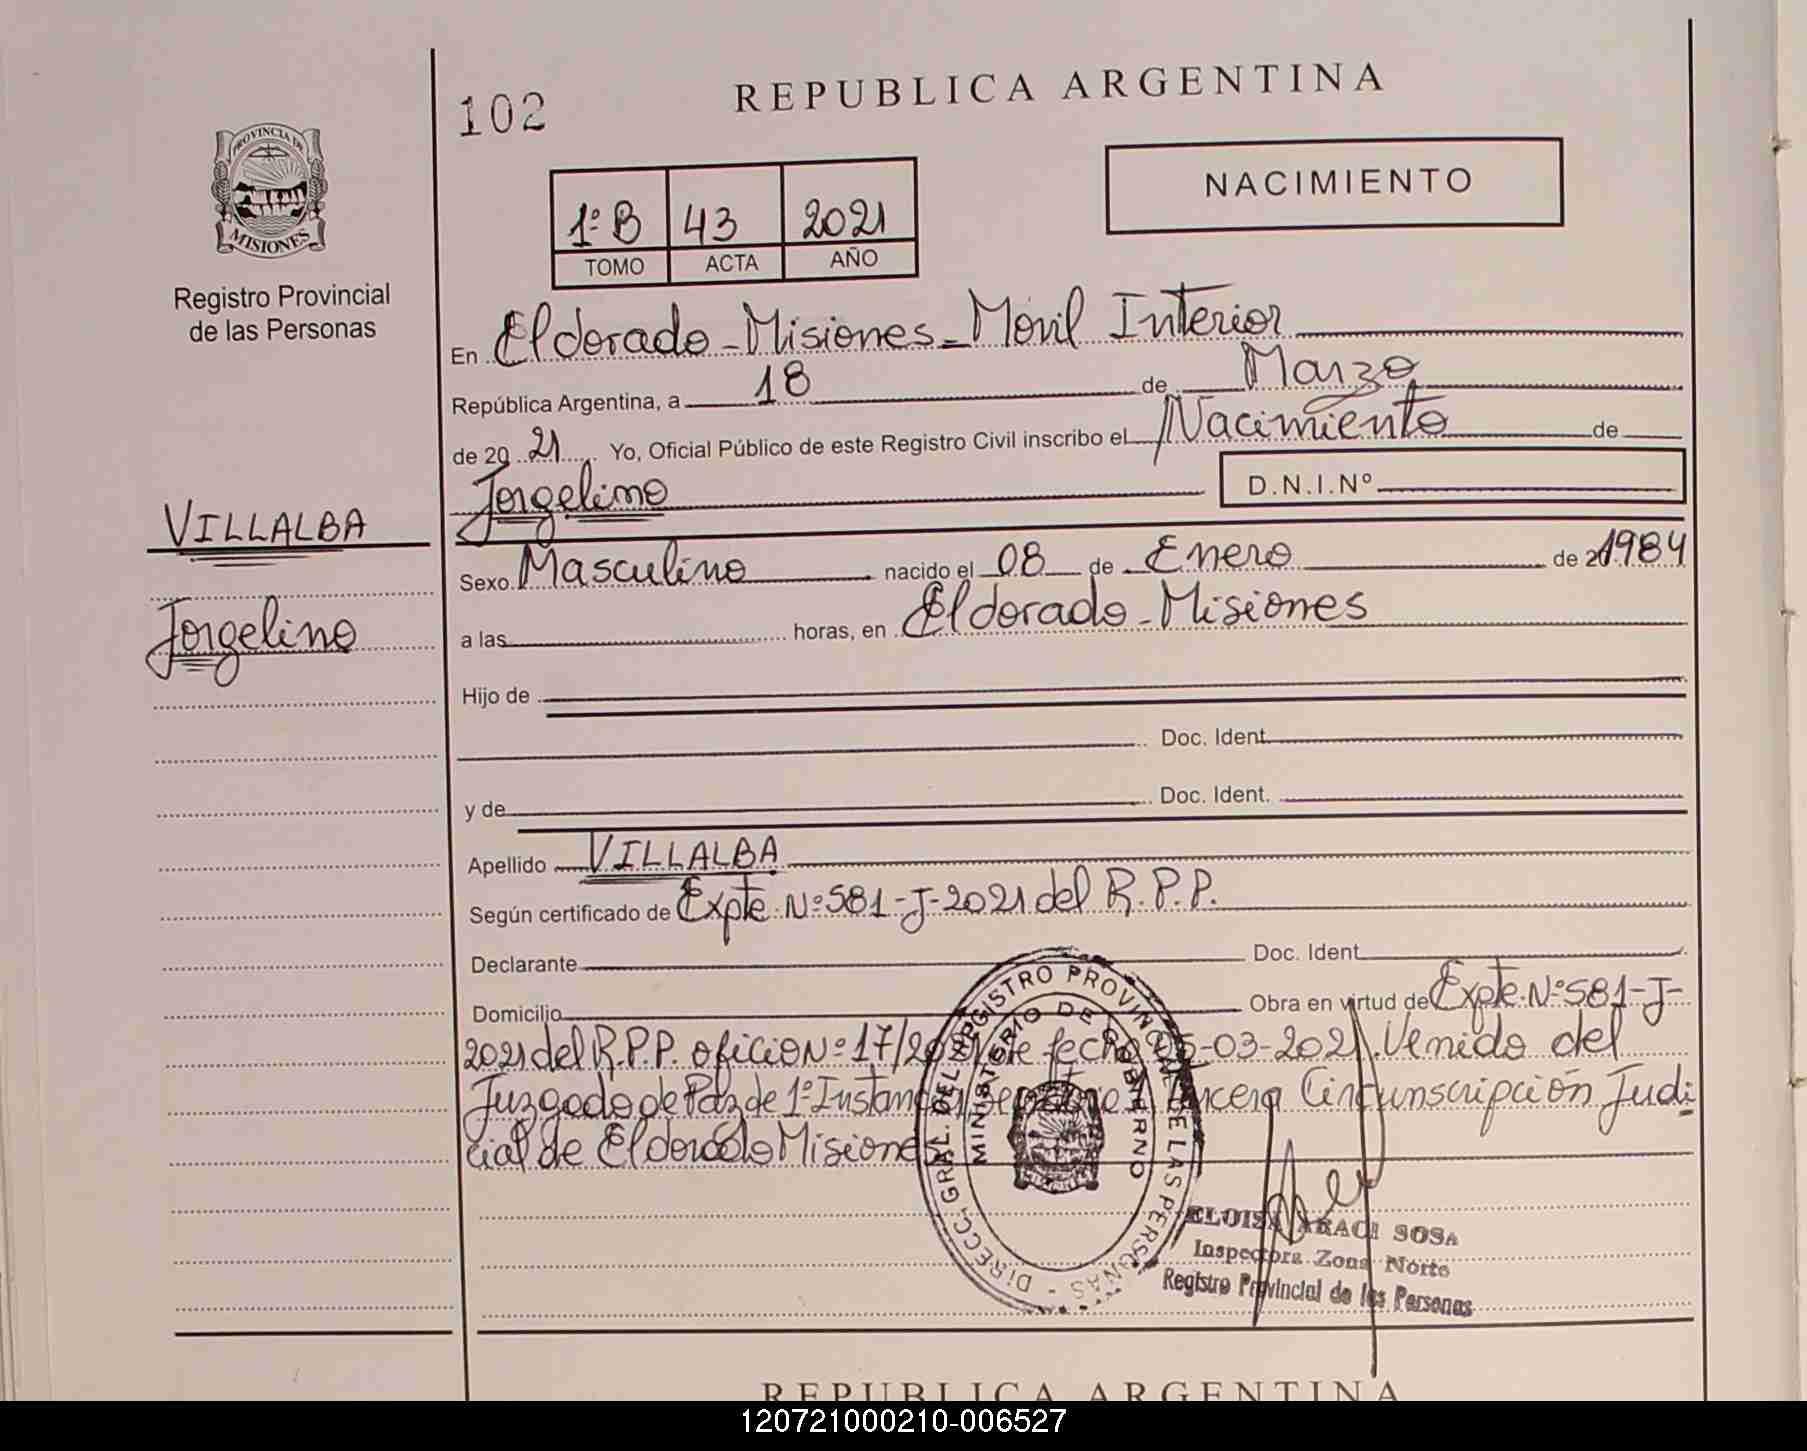 102
REPUBLICA ARGENTINA
PROVINCIA DE
MISIONES
NACIMIENTO
1º B 43 2021
TOMO ACTA AÑO
Registro Provincial
de las Personas
En Eldorado - Misiones - Móvil Interior
República Argentina, a 18 de Marzo
de 20 21 Yo, Oficial Público de este Registro Civil inscribo el Nacimiento de
Jorgelino D.N.I.Nº
VILLALBA
Sexo Masculino nacido el 08 de Enero de 1984
Jorgelino
a las horas, en Eldorado - Misiones
Hijo de
Doc. Ident.
y de Doc. Ident.
Apellido VILLALBA
Según certificado de Expte. Nº 581-J-2021 del R.P.P.
Declarante Doc. Ident.
Domicilio Obra en virtud de Expte. Nº 581-J-
2021 del R.P.P. oficio Nº 17/2021 de fecha 05-03-2021. Venido del
Juzgado de Paz de 1º Instancia, Tercera Circunscripción Judi
cial de Eldorado Misiones
DIRECC. GRAL. DEL REGISTRO PROVINCIAL DE LAS PERSONAS -
MINISTERIO DE GOBIERNO
ELOISA ARACI SOSA
Inspectora Zona Norte
Registro Provincial de las Personas
REPUBLICA ARGENTINA
120721000210-006527